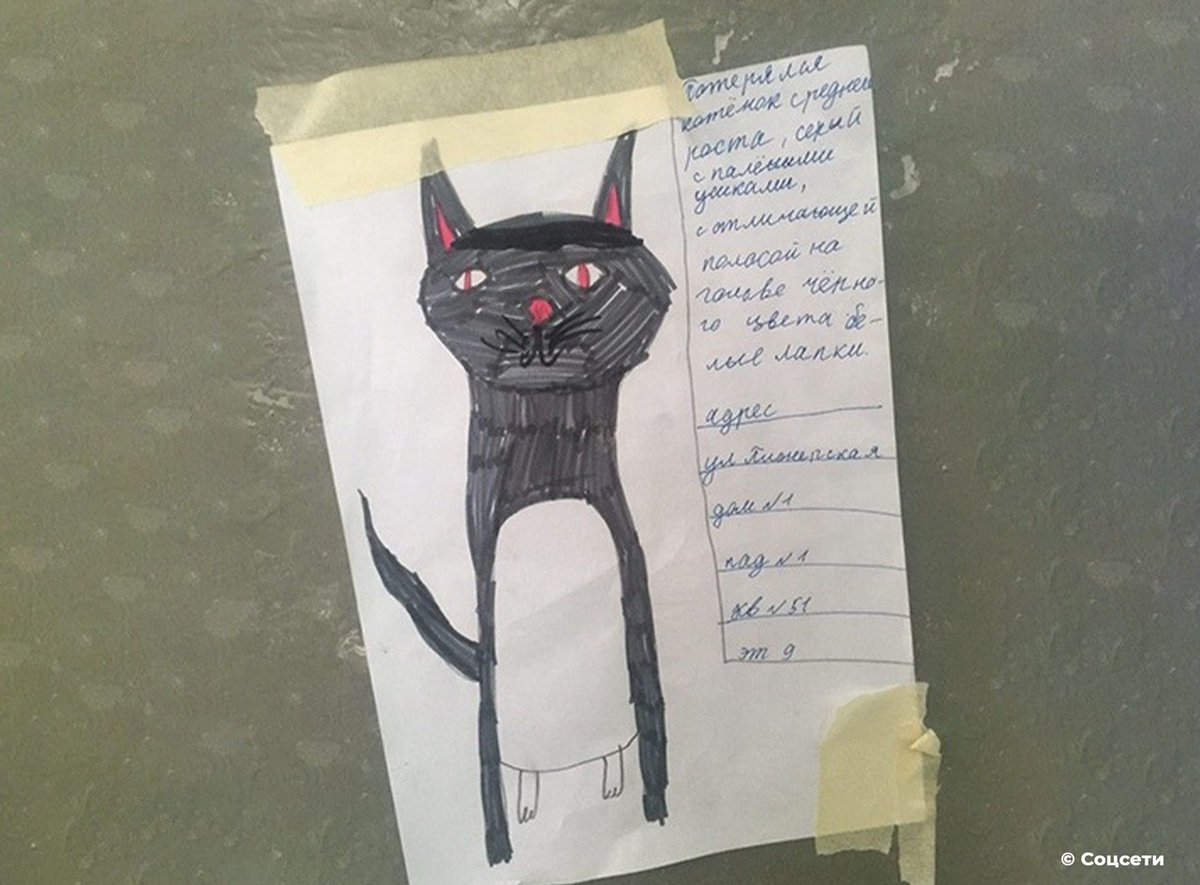 Потерялся
котёнок среднего
роста, серый
с палёными
ушками,
с отличающей
полосой на
голове чёрно-
го цвета бе-
лые лапки.
адрес
ул Пионерская
дом №1
пад №1
кв №51
эт 9
© Соцсети